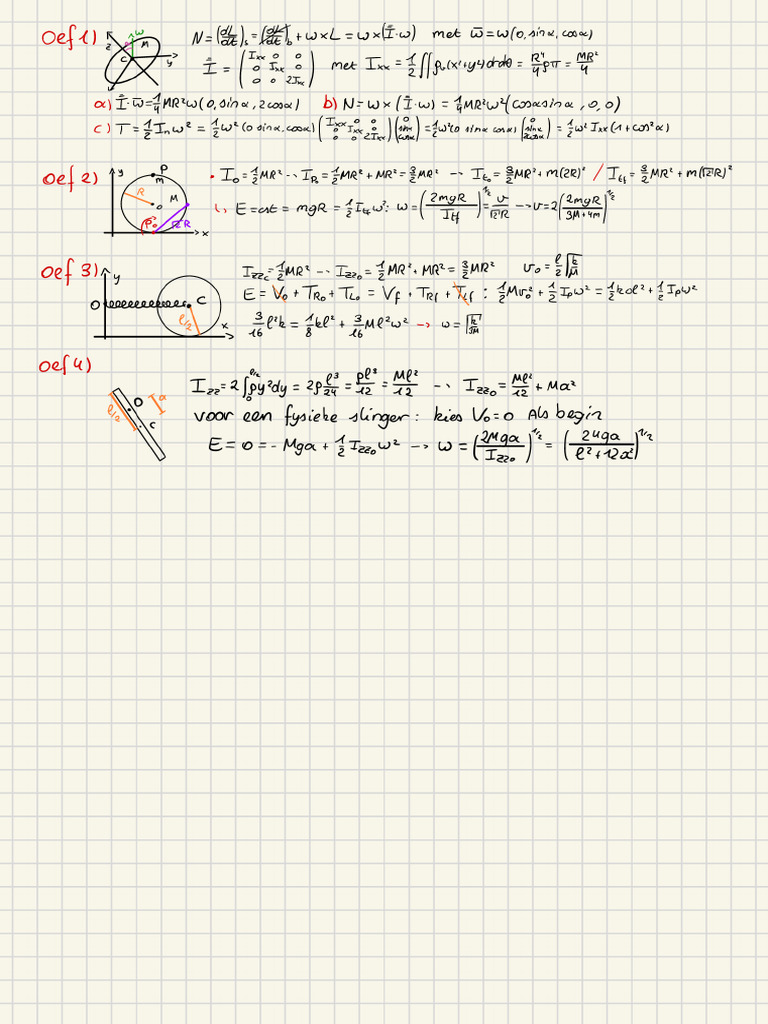 Oef 1)
z ω M C y
N = (dL/dt)_s = (dL/dt)_b + ω × L = ω × (I̿·ω) met ω̅ = ω(0, sinα, cosα)
I̿ = (Ixx 0 0
0 Ixx 0
0 0 2Ixx) met Ixx = 1/2 ∬ρr(x²+y²)drdθ = R⁴/4 ρπ = MR²/4
a) I̿·ω̅ = 1/4 MR²ω(0, sinα, 2cosα) b) N = ω × (I̿·ω) = 1/4 MR²ω²(cosα sinα, 0, 0)
c) T = 1/2 Iₙω² = 1/2 ω²(0 sinα, cosα) (Ixx 0 0
0 Ixx 0
0 0 2Ixx) (0
sinα
cosα) = 1/2 ω²(0 sinα cosα) (0
sinα
2cosα) = 1/2 ω² Ixx(1+cos²α)
Oef 2)
y P m R M o P₀ √2R x
• I₀ = 1/2 MR² -- I_P₀ = 1/2 MR² + MR² = 3/2 MR² -- I_t₀ = 3/2 MR² + m(2R)² / I_tf = 3/2 MR² + m(√2R)²
↳ E = cst = mgR = 1/2 I_tf ω²: ω = (2mgR/I_tf)^1/2 = v/√2R --→ v = 2(2mgR/3M+4m)^1/2
Oef 3)
y O C l/2 x
Izz_c = 1/2 MR² -- Izz₀ = 1/2 MR² + MR² = 3/2 MR² v₀ = l/2 √k/M
E = V₀ + T_R₀ + T_L₀ = V_f + T_Rf + T_Lf : 1/2 Mv₀² + 1/2 I_pω² = 1/2 kol² + 1/2 I_pω²
3/16 l²k = 1/8 kl² + 3/16 Ml²ω² → ω = √k/3M
Oef 4)
l/2 O a C
Izz = 2∫₀^l/2 ρy²dy = 2ρ l³/24 = ρl³/12 = Ml²/12 -- Izz₀ = Ml²/12 + Ma²
voor een fysieke slinger: kies V₀=0 Als begin
E = 0 = -Mga + 1/2 Izz₀ω² --→ ω = (2Mga/Izz₀)^1/2 = (24ga/l²+12a²)^1/2